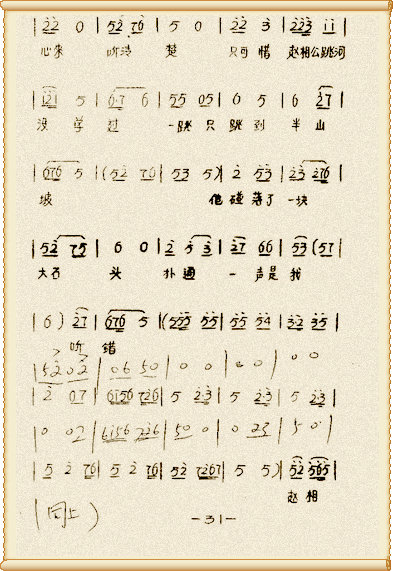 | 2̇2̇ 0 | 52̇ 76 | 5 0 | 2̇2̇ 3̇ | 2̇2̇3̇ 1̇1̇ |
心来 听清 楚 只可 惜 赵相公跳河
| 1̇2̇1̇ 5 | 67 6 | 55 05 | 6 5 | 6 2̇7 |
没 学 过 一跳 只 跳 到 半 山
| 676 5 | (52̇ 76 | 53 5) | 2̇ 53 | 2̇3̇ 2̇76 |
坡 他 碰 落了 一块
| 52̇ 75 | 6 0 | 2̇ 5 3̇ | 2̇7 66 | 53 (57 |
大石 头 扑 通 一 声是 我
| 6) 2̇7 | 676 5 | (555 55 | 55 54 | 32 35 |
听 错
| 52̇ 02̇ | 06 50 | 0 0 | 0 0 | 0 0
| 2̇ 07 | 6156 726 | 5 2̇3̇ | 5 2̇3̇ | 5 2̇3̇ |
| 0 02 | 6156 2̇2̇6 | 50 0 | 0 23 | 5 0 |
| 5 2̇ 76 | 5 2̇ 76 | 52̇ 7267 | 5 5) | 52̇ 565 |
赵 相
| (同上)
-31-